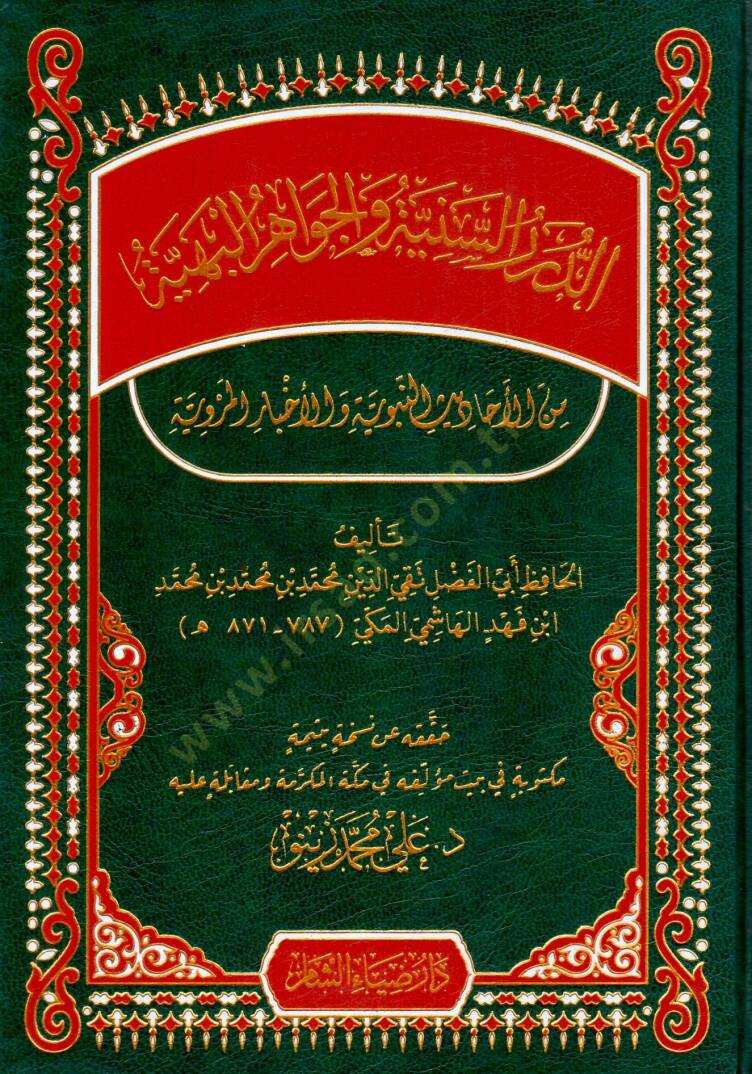 الدُّرَرُ السَّنِيَّةُ وَالجَوَاهِرُ البَهِيَّةُ
مِنَ الأَحَادِيثِ النَّبَوِيَّةِ وَالأَخْبَارِ المَرْوِيَّةِ
تَأْلِيفُ
الحَافِظِ أَبِي الفَضْلِ تَقِيِّ الدِّينِ مُحَمَّدِ بْنِ مُحَمَّدِ بْنِ مُحَمَّدِ
ابْنِ فَهْدٍ الهَاشِمِيِّ المَكِّيِّ (٧٨٧ - ٨٧١ هـ)
حَقَّقَهُ عن نسخةٍ يتيمةٍ
مكتوبةٍ في بيت مؤلِّفه في مكَّة المكرَّمة ومقابَلةٍ عليه
د. عَلِي مُحَمَّد زَيْنُو
دَارُ ضِيَاءِ الشَّامِ
www.ihsan.com.tr